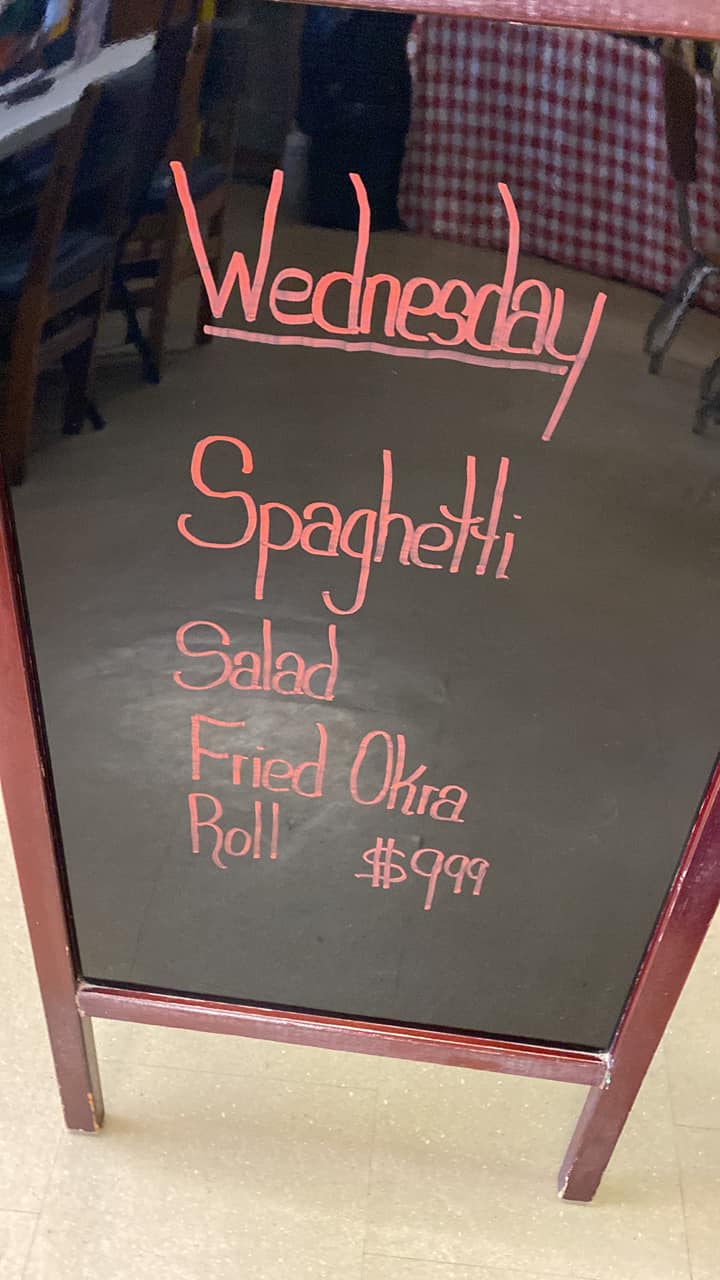 Wednesday
Spaghetti
Salad
Fried Okra
Roll $999